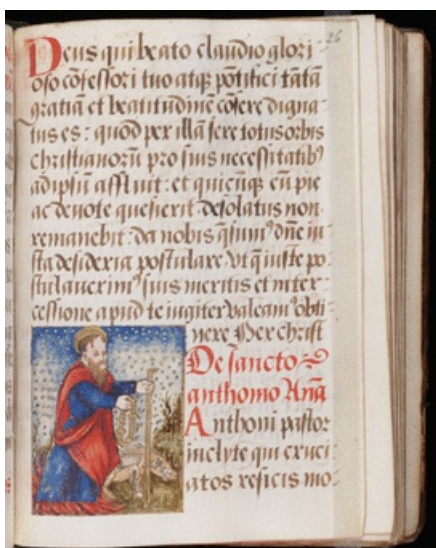 26
Deus qui beato claudio glori-
oso cōfessori tuo atqꝫ pōtifici tātā
gratiā et beatitudinē cōfere digna-
tus es: quod per illā fere totus orbis
christianorū pro suis necessitatibꝰ
adipsū affluit: et quicūqꝫ eū pie
ac deuote quesierit desolatus non
remanebit: da nobis q̄sumꝰ dn̄e iu-
sta desideria postulare vt q̄ iuste po-
stulauerimꝰ suis meritis et inter-
cessione apud te iugiter valeamꝰ obti-
nere Per christ
De sancto
anthonio Anā
Anthoni pastor
inclyte qui cruci-
atos reficis mo-